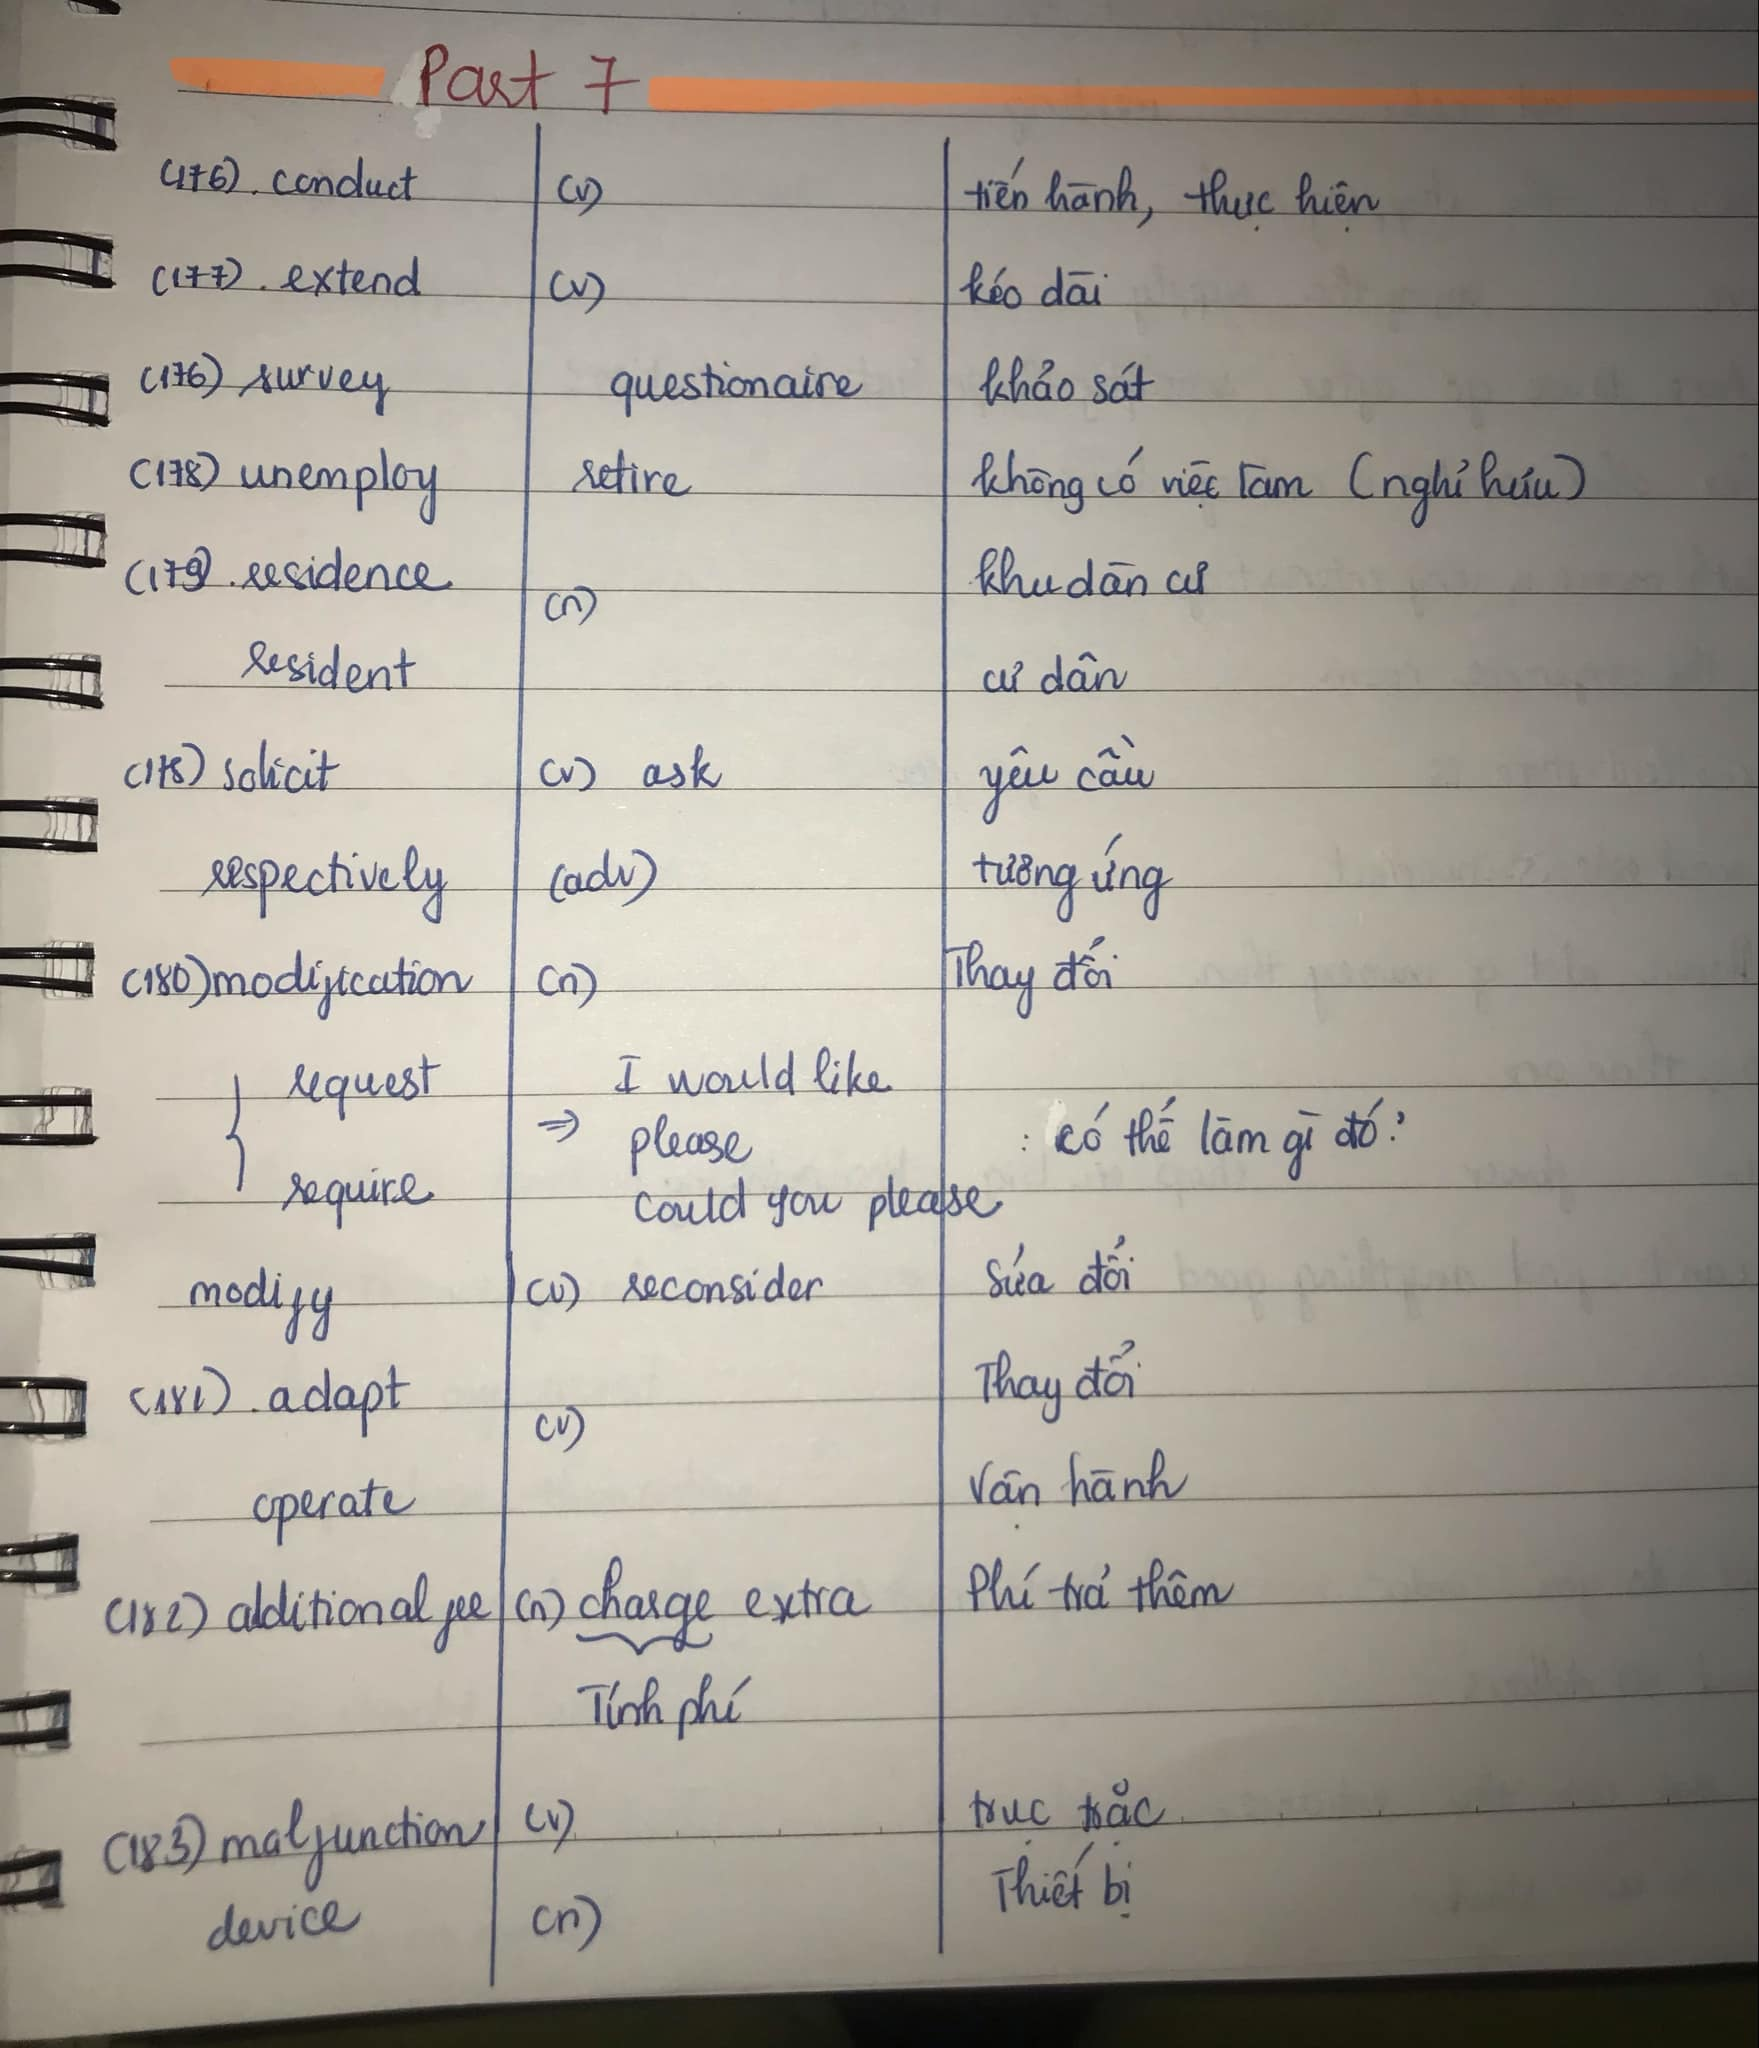 Part 7
(176). conduct (v) tiến hành, thực hiện
(177). extend (v) kéo dài
(176) survey questionaire khảo sát
(178) unemploy retire không có việc làm (nghỉ hưu)
(179). residence (n) khu dân cư
resident cư dân
(178) solicit (v) ask yêu cầu
respectively (adv) tương ứng
(180) modification (n) Thay đổi
request I would like
⇒ please : có thể làm gì đó?
require could you please
modify (v) reconsider Sửa đổi
(181). adapt (v) Thay đổi
operate Vận hành
(182) additional fee (n) charge extra Phí trả thêm
Tính phí
(183) malfunction (v) trục trặc
device (n) Thiết bị